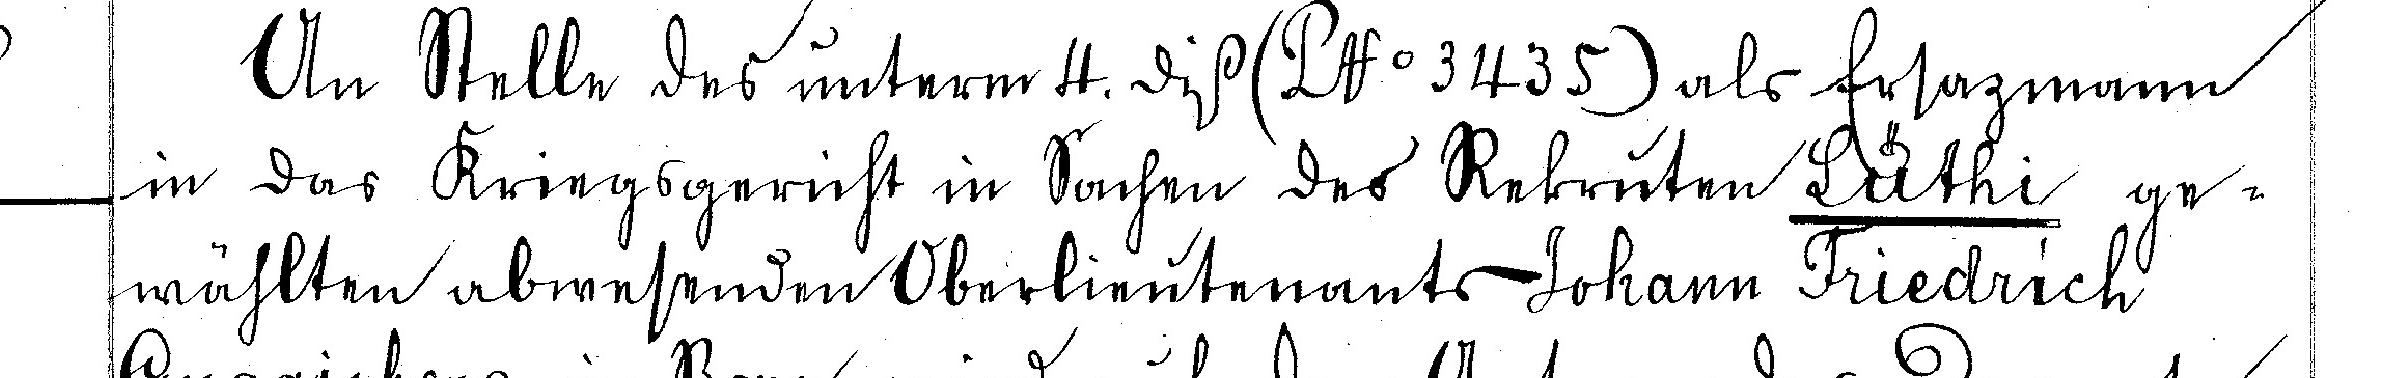 An Stelle des unterm 4. diß (P N° 3435) als Ersazmann
in das Kriegsgericht in Sachen des Rekruten Lüthi ge-
wählten abwesenden Oberlieutenants Johann Friedrich